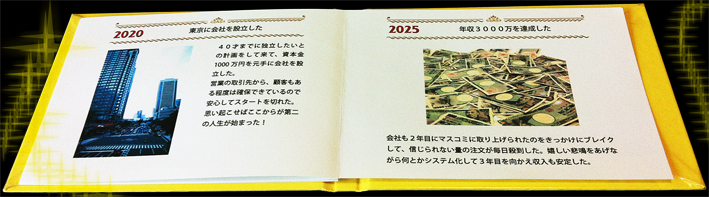 2020
東京に会社を設立した
４０才までに独立したいと
の計画をして来て、資本金
1000万円を元手に会社を設
立した。
営業の取引先から、顧客もあ
る程度は確保できているので
安心してスタートを切れた。
思い起こせばここからが第二
の人生が始まった！
2025
年収３０００万を達成した
会社も２年目にマスコミに取り上げられたのをきっかけにブレイク
して、信じられない量の注文が毎日殺到した。嬉しい悲鳴をあげな
がら何とかシステム化して３年目を向かえ収入も安定した。